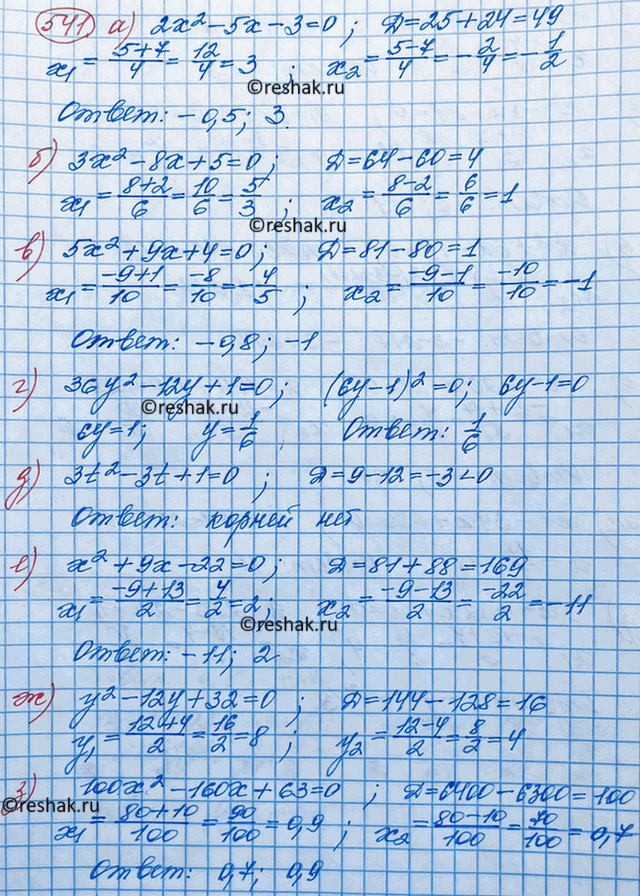 541. а) 2x² - 5x - 3 = 0 ; D = 25 + 24 = 49
x₁ = (5+7)/4 = 12/4 = 3 ; x₂ = (5-7)/4 = -2/4 = -1/2
©reshak.ru
Ответ: -0,5; 3.
б) 3x² - 8x + 5 = 0; D = 64 - 60 = 4
x₁ = (8+2)/6 = 10/6 = 5/3 ; x₂ = (8-2)/6 = 6/6 = 1
©reshak.ru
в) 5x² + 9x + 4 = 0; D = 81 - 80 = 1
x₁ = (-9+1)/10 = -8/10 = -4/5 ; x₂ = (-9-1)/10 = -10/10 = -1
Ответ: -0,8; -1
г) 36y² - 12y + 1 = 0; (6y-1)² = 0; 6y-1 = 0
©reshak.ru
6y = 1; y = 1/6 Ответ: 1/6
д) 3t² - 3t + 1 = 0 ; D = 9 - 12 = -3 < 0
Ответ: корней нет
е) x² + 9x - 22 = 0; D = 81 + 88 = 169
x₁ = (-9+13)/2 = 4/2 = 2; x₂ = (-9-13)/2 = -22/2 = -11
©reshak.ru
Ответ: -11; 2
ж) y² - 12y + 32 = 0 ; D = 144 - 128 = 16
y₁ = (12+4)/2 = 16/2 = 8 ; y₂ = (12-4)/2 = 8/2 = 4
з) 100x² - 160x + 63 = 0 ; D = 6400 - 6300 = 100
©reshak.ru
©reshak.ru
x₁ = (80+10)/100 = 90/100 = 0,9 ; x₂ = (80-10)/100 = 70/100 = 0,7
Ответ: 0,7; 0,9